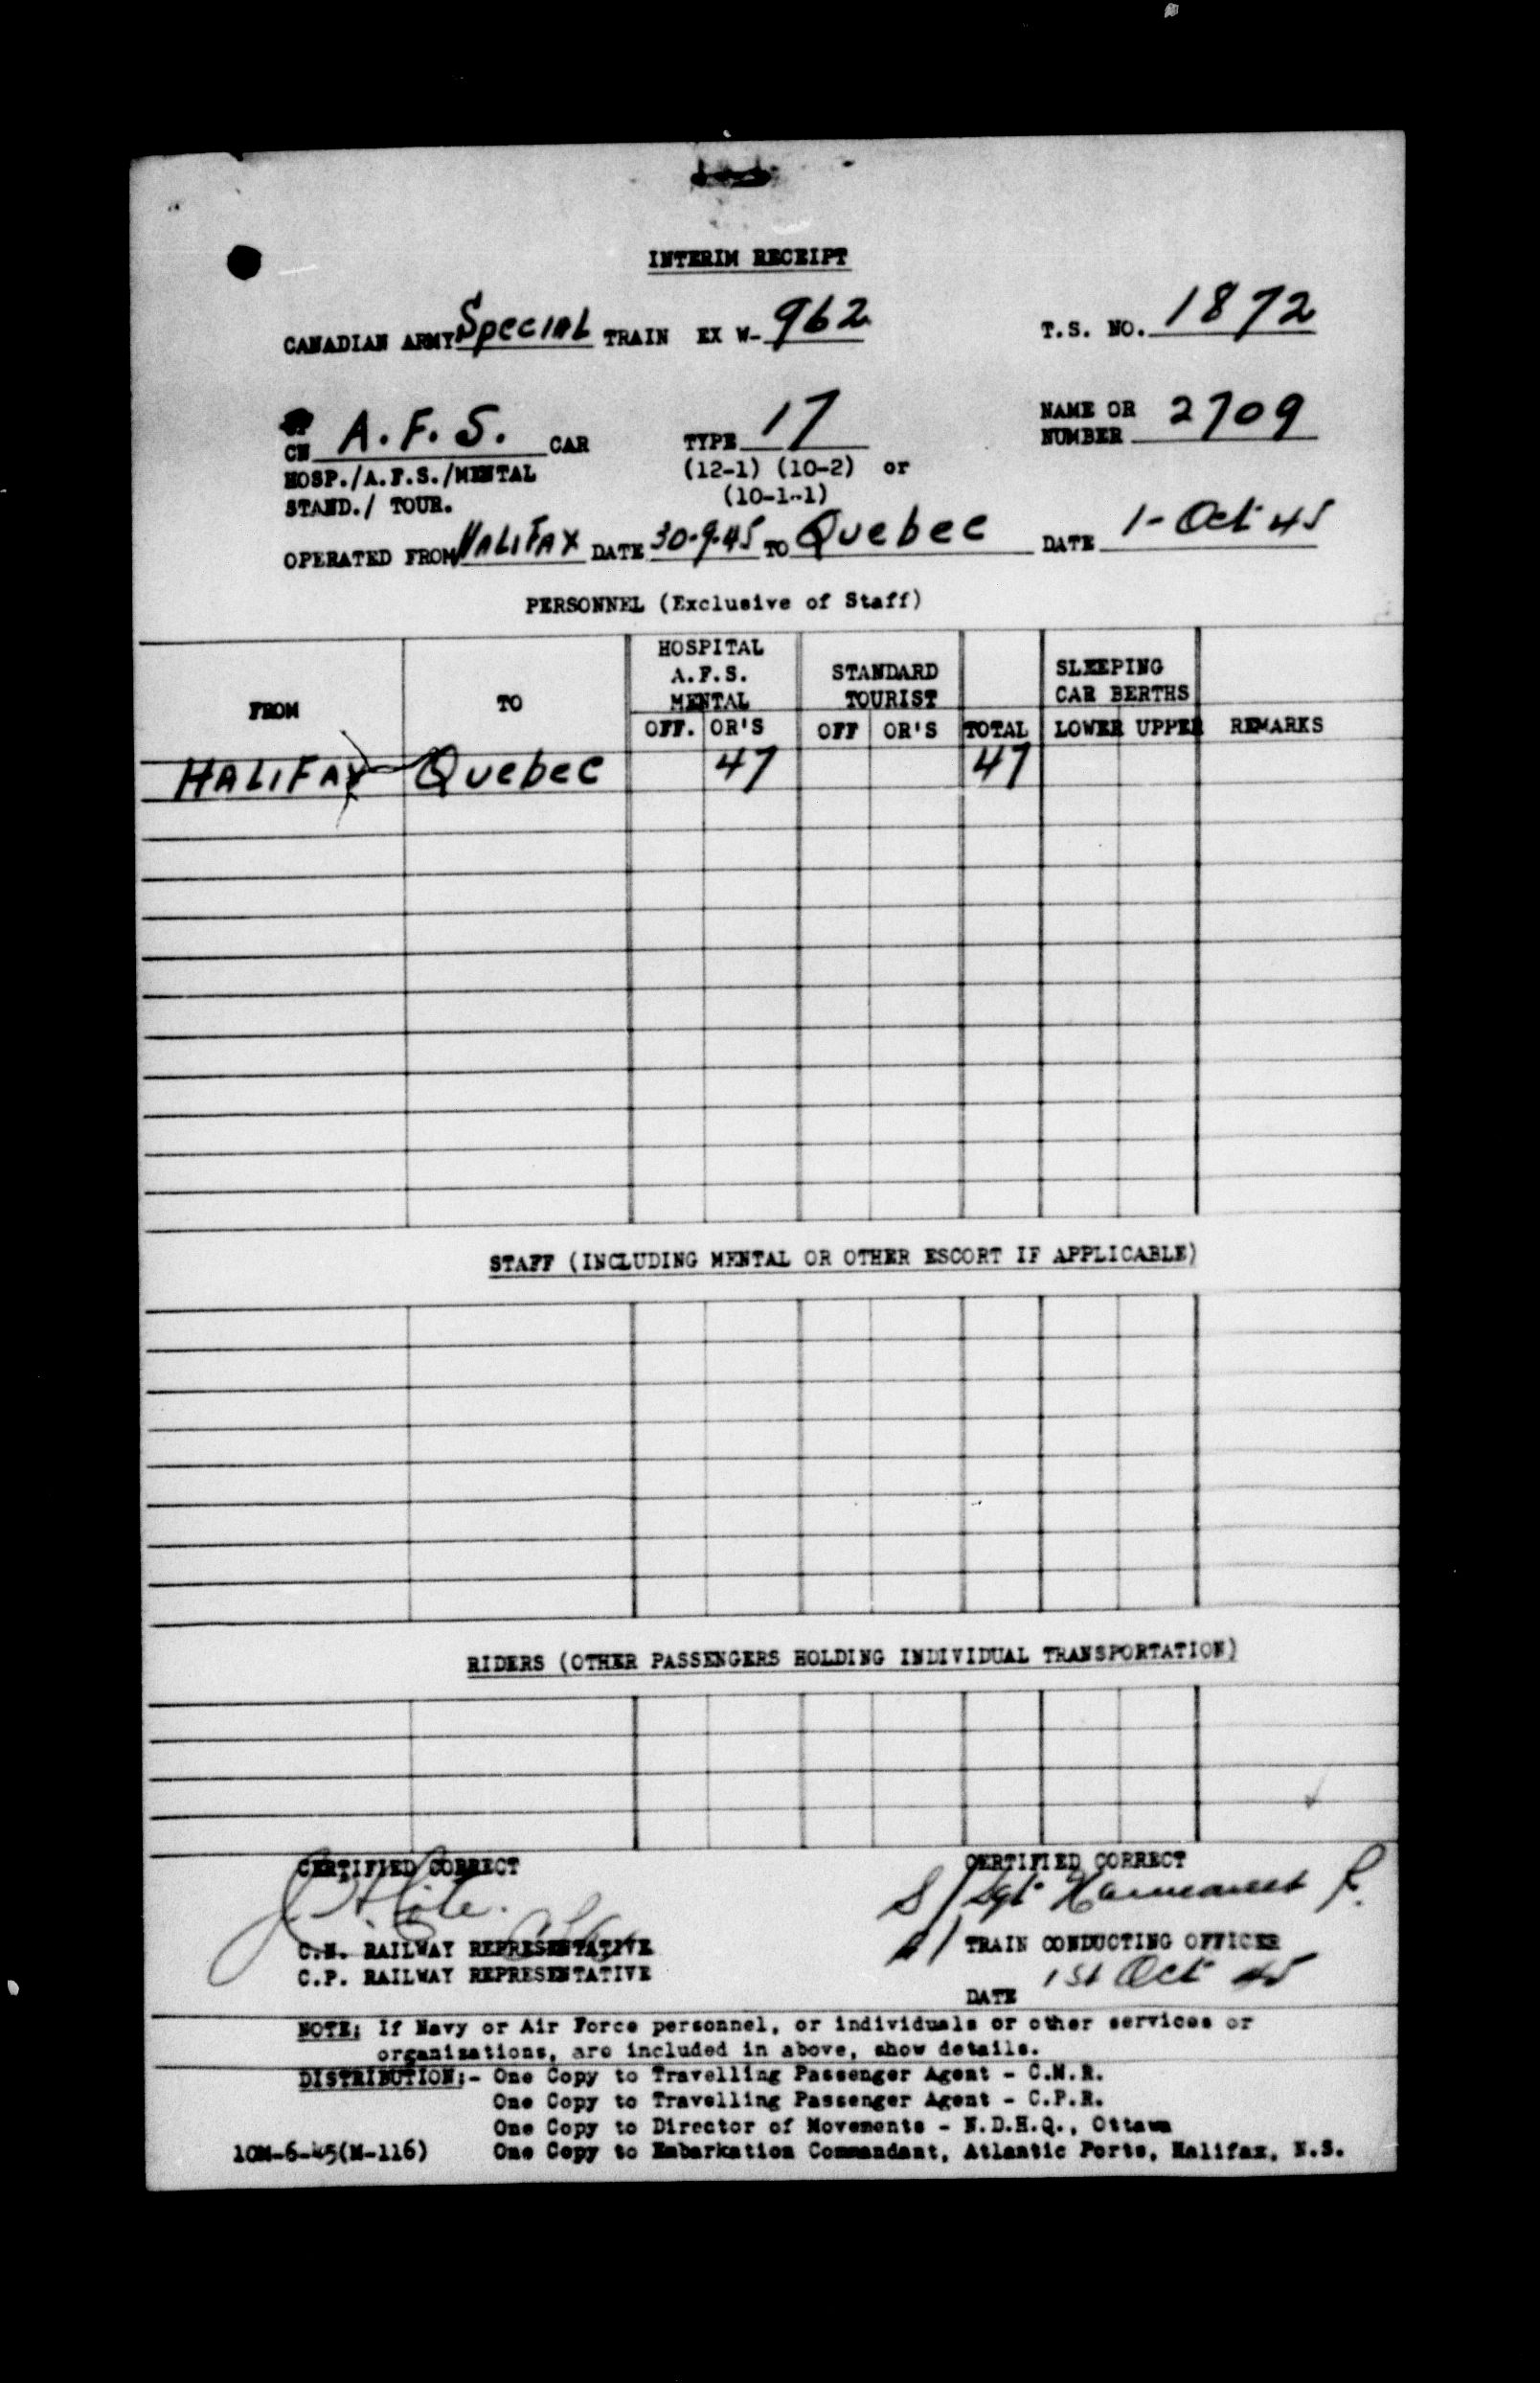 INTERIM RECEIPT
CANADIAN ARMY Special TRAIN EX W- 962 T.S. NO. 1872
CN A.F.S. CAR TYPE 17 NAME OR NUMBER 2709
HOSP./A.F.S./MENTAL (12-1) (10-2) or
STAND./ TOUR. (10-1-1)
OPERATED FROM HALIFAX DATE 30-9-45 TO Quebec DATE 1- Oct 45
PERSONNEL (Exclusive of Staff)
FROM TO HOSPITAL A.F.S. MENTAL STANDARD TOURIST SLEEPING CAR BERTHS
OFF. OR'S OFF OR'S TOTAL LOWER UPPER REMARKS
HALIFAX Quebec 47 47
STAFF (INCLUDING MENTAL OR OTHER ESCORT IF APPLICABLE)
RIDERS (OTHER PASSENGERS HOLDING INDIVIDUAL TRANSPORTATION)
CERTIFIED CORRECT CERTIFIED CORRECT
S/Sgt
C.N. RAILWAY REPRESENTATIVE TRAIN CONDUCTING OFFICER
C.P. RAILWAY REPRESENTATIVE
DATE 1st Oct 45
NOTE: If Navy or Air Force personnel, or individuals or other services or
organizations, are included in above, show details.
DISTRIBUTION:- One Copy to Travelling Passenger Agent - C.N.R.
One Copy to Travelling Passenger Agent - C.P.R.
One Copy to Director of Movements - N.D.H.Q., Ottawa
10M-6-45(M-116) One Copy to Embarkation Commandant, Atlantic Ports, Halifax, N.S.